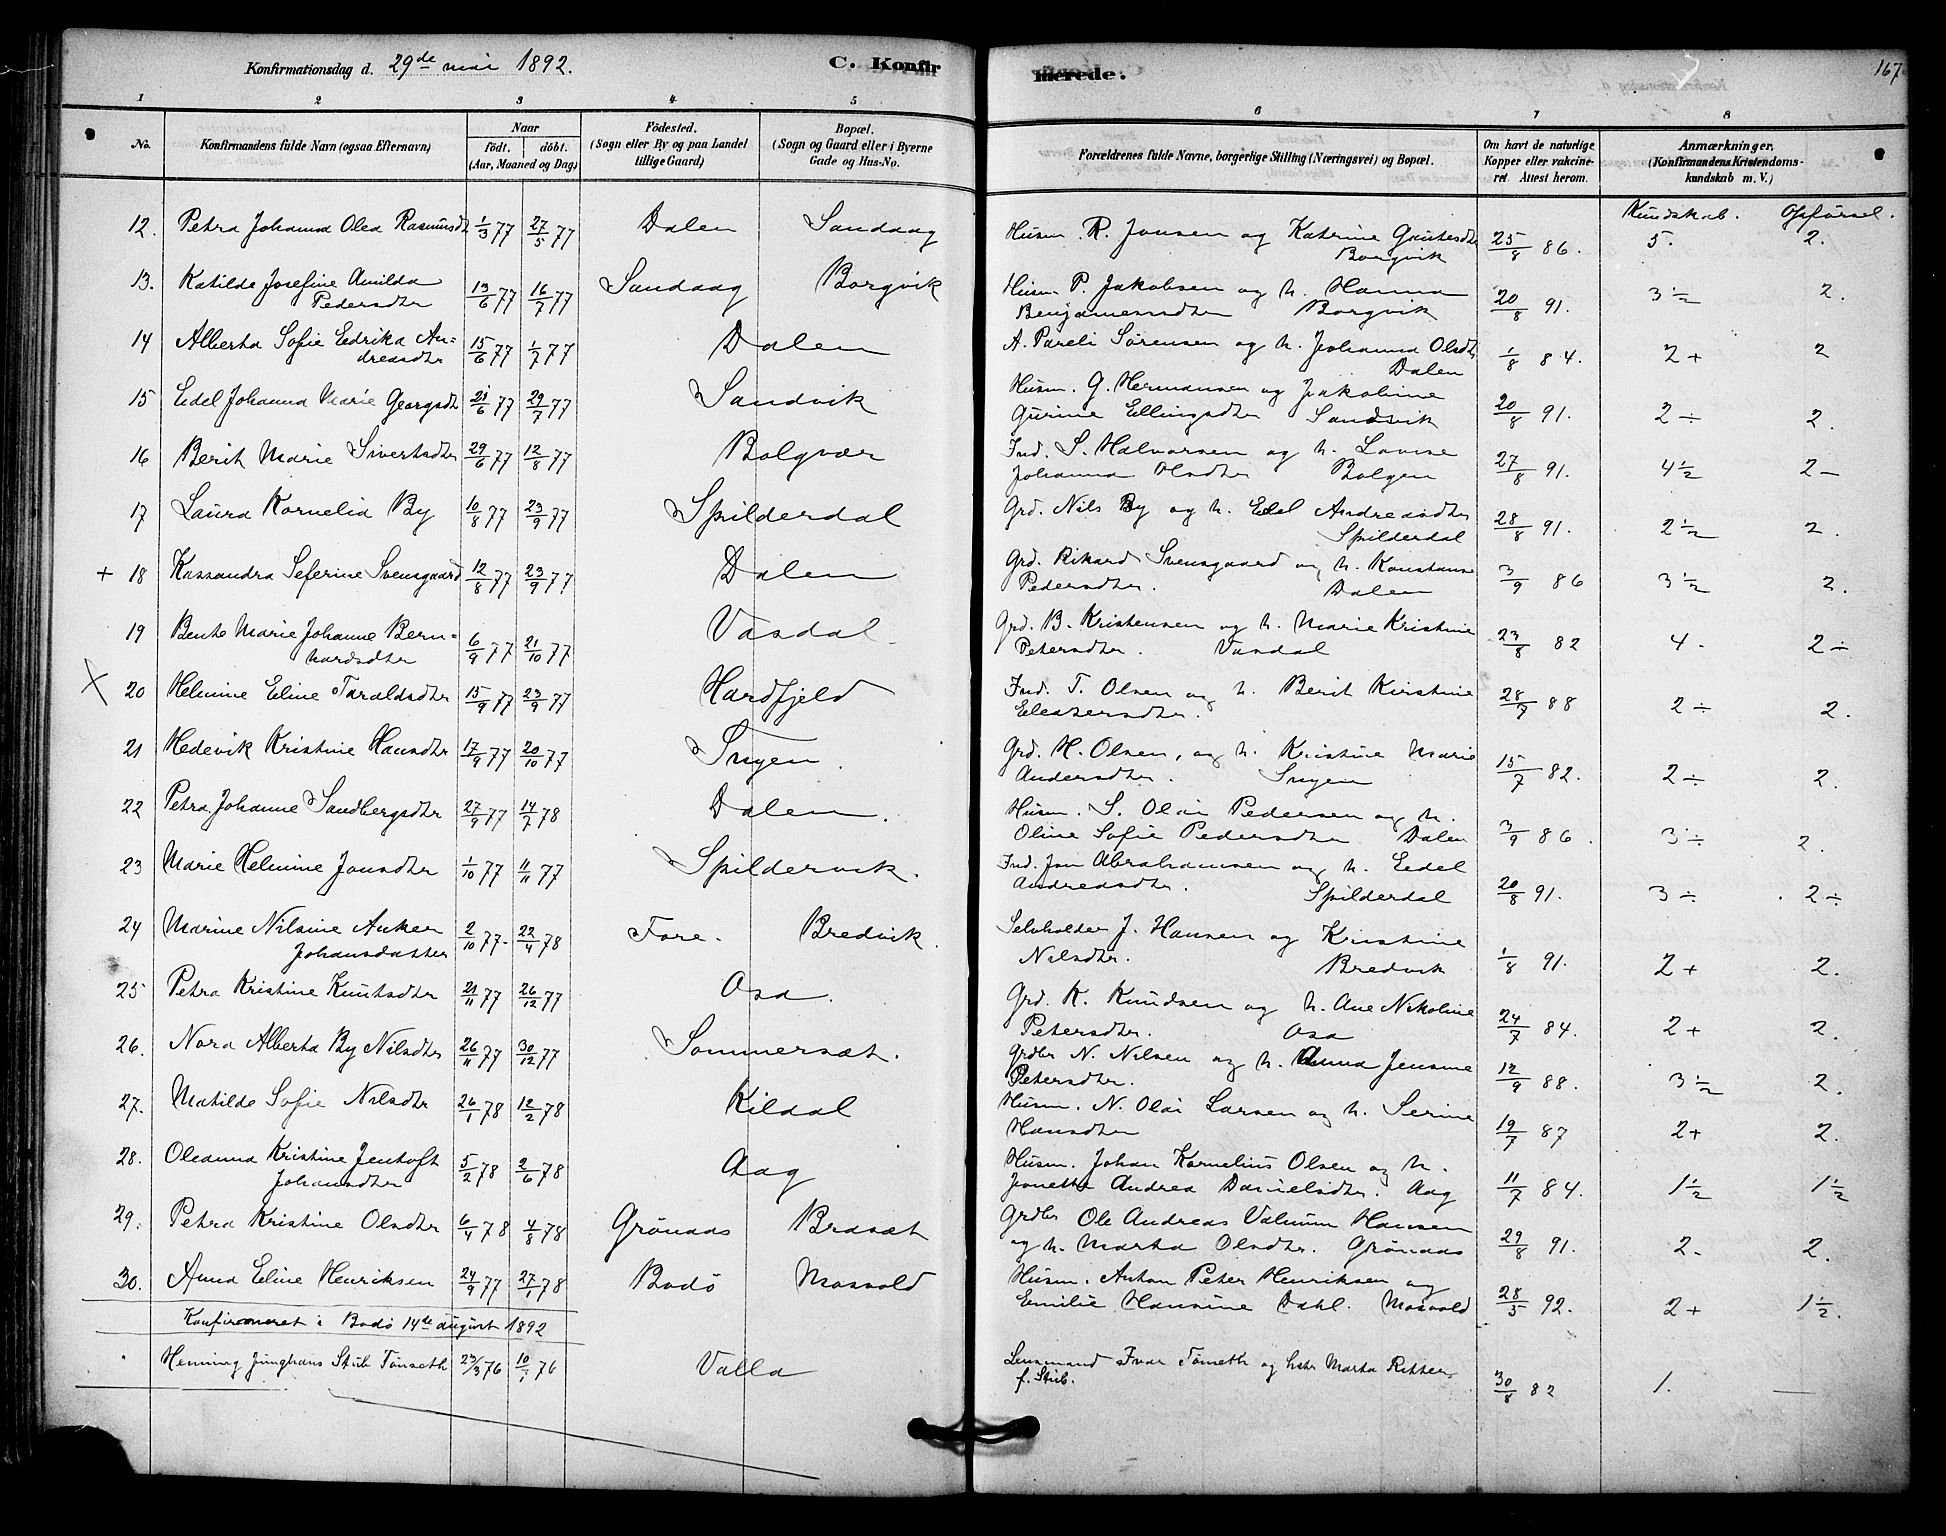 Konfirmationsdag d. 29de mai 1892. C. Konfirmerede. 167
1 2 3 4 5 6 7 8
No. Konfirmandens fulde Navn (ogsaa Efternavn) Naar født. døbt. (Aar, Maaned og Dag) Fødested. (Sogn eller By og paa Landet tillige Gaard) Bopæl. (Sogn og Gaard eller i Byerne Gade og Hus-No. Forældrenes fulde Navne, borgerlige Stilling (Næringsvei) og Bopæl. Om havt de naturlige Kopper eller vakcineret. Attest herom. Anmærkninger. (Konfirmandens Kristendomskundskab m. V.)
Kundskab. Opførsel.
12. Petra Johanna Olea Rasmusdtr 1/3 77 27/5 77 Dalen Sandaag Husm. R. Jonsen og Katrine 25/8 86. 5. 2.
Borgvik
13. Katilde Josefine Amilda 13/6 77 16/7 77 Sandaag Borgvik Husm. P. Jakobsen og h. Hanna 20/8 91. 3 1/2 2.
Pedersdtr Benjaminsdtr Borgvik
14 Alberta Sofie Edrika An= 15/6 77 1/7 77 Dalen A. Pareli Sørensen og h. Johanna Olsdtr 1/8 84. 2+ 2
dreasdtr Dalen
15 Edel Johanna Marie Georgsdtr 21/6 77 29/7 77 Sandvik Husm. G. Hermansen og Jakobine 20/8 91. 2÷ 2.
Gurine Ellingsdtr Sandvik
16 Berit Marie Sivertsdtr 29/6 77 12/8 77 Bolgvær Ind. S. Halvorsen og h. Lovise 27/8 91. 4 1/2 2-
Johanna Olsdtr Bolgen
17 Laura Kornelia By 10/8 77 23/9 77 Spilderdal Grd. Nils By og h. Edel Andreasdtr 28/8 91. 2 1/2 2.
Spilderdal
+ 18 Kassandra Seferine Svensgaard 12/8 77 23/9 77 Dalen Grd. Rikard Svensgaard og h. Konstanse 3/9 86 3 1/2 2.
Pedersdtr. Dalen
19 Bente Marie Johanne Bern= 6/9 77 21/10 77 Vasdal Grd. B. Kristensen og h. Marie Kristine 23/8 82 4- 2÷
hardsdtr Petersdtr. Vasdal
X 20 Helmine Eline Taraldsdtr 15/9 77 23/9 77 Hardfjeld Ind. T. Olsen og h. Berit Kristine 28/7 88 2÷ 2.
Eleasersdtr.
21 Hedevik Kristine Hansdtr 17/9 77 20/10 77 Ingen. Grd. H. Olsen, og h. Kristine Marie 15/7 82. 2÷ 2.
Andersdtr. Ingen
22 Petra Johanne Sandbergsdtr 27/9 77 14/7 78 Dalen. Husm. S. Olai Pedersen og h. 3/9 86. 3÷ 2.
Oline Sofie Pedersdtr Dalen
23 Marie Helmine Jonsdtr 1/10 77 11/11 77 Spildervik. Ind. Jon Abrahamsen og h. Edel 20/8 91. 3÷ 2÷
Andreasdtr. Spilderdal
24 Marine Nilsine Anker 2/10 77- 22/4 78 Fore. Bredvik. Selvholder J. Hansen og Kristine 1/8 91. 2+ 2.
Johansdatter Nilsdtr. Bredvik
25 Petra Kristine Knutsdtr 21/11 77 26/12 77 Osa. Grd. K. Knudsen og h. Ane Nikoline 24/7 84. 2+ 2.
Petersdtr. Osa
26. Nora Alberta By Nilsdtr 26/11 77 30/12 77 Sommersæt. Grdbr N. Nilsen og h. Anna Jensine 12/9 88. 3 1/2 2.
Petersdtr.
27. Matilde Sofie Nilsdtr 26/1 78 12/2 78 Kildal Husm. N. Olai Larsen og h. Serine 19/7 87 2+ 2.
Hansdtr
28. Oleanna Kristine Jentoft 5/2 78 2/6 78 Aag Husm. Johan Kornelius Olsen og h. 11/7 84. 1 1/2 1 1/2
Johansdtr Jonette Andrea Danielsdtr. Aag
29. Petra Kristine Olsdtr 6/4 78 4/8 78 Grønaas Brasæt Grdbr Ole Andreas Valnum Hansen 29/8 91. 2- 2.
og h. Marta Olsdtr. Grønaas
30. Anna Eline Henriksen 24/9 77 27/1 78 Bodø Mosvold Husm. Anton Peter Henriksen og 28/5 92. 2+ 1 1/2.
Emilie Hansine Dahl. Mosvold
Konfirmeret i Bodø 14de august 1892
Henning Junghans Stub Tønseth 23/3 76 10/1 76 Valla Lensmand Ivar Tønseth og hstr Marta 30/8 82 1. —
f. Stub.